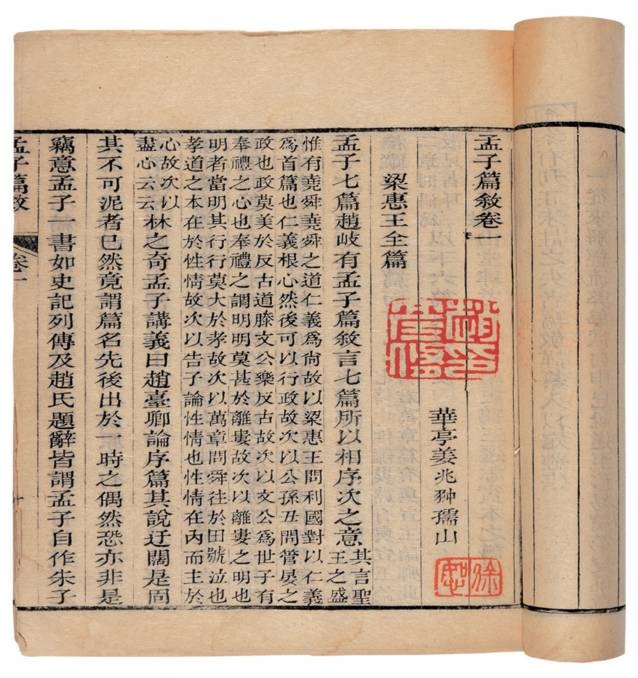 孟子篇敘卷一
梁惠王全篇
華亭姜兆翀孺山
徐恕
孟子七篇趙岐有孟子篇敘言七篇所以相序次之意其言聖
王之盛
惟有堯舜堯舜之道仁義為尚故以梁惠王問利國對以仁義
為首篇也仁義根心然後可以行政故次以公孫丑問管晏之
政也政莫美於反古道滕文公樂反古故次以文公為世子有
奉禮之心也奉禮之謂明明莫甚於離婁故次以離婁之明也
明者當明其行行莫大於孝故次以萬章問舜往於田號泣也
孝道之本在於性情故次以告子論性情也性情在內而主於
心故次以
盡心云云林之奇孟子講義曰趙臺卿論序篇其說迂闊是固
其不可泥者已然竟謂篇名先後出於一時之偶然恐亦非是
竊意孟子一書如史記列傳及趙氏題辭皆謂孟子自作朱子
孟子篇敘
卷一